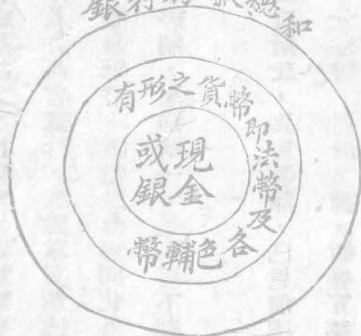 銀行總和
有形之貨幣即法幣及各色輔幣
現金
或銀